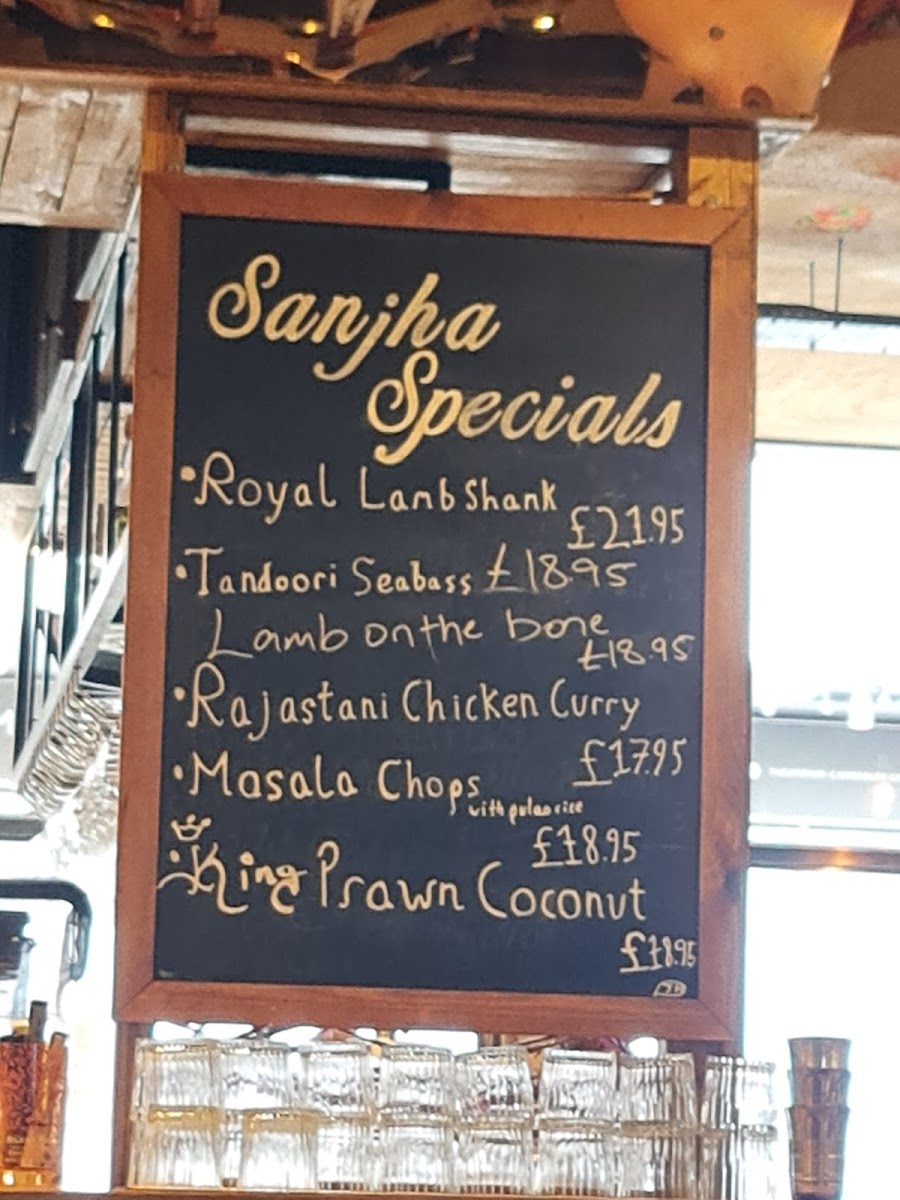 Sanjha
Specials
•Royal Lamb Shank
£21.95
•Tandoori Seabass £18.95
Lamb on the bone
£18.95
•Rajastani Chicken Curry
£17.95
•Masala Chops
with pulao rice
£18.95
•King Prawn Coconut
£18.95